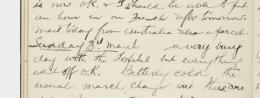 is now O.K. & I should be able to put
an hour in on French after tomorrow
mail today from Australia also a parcel.
Sunday 3rd March a very busy
day with the Hospital but everything
went off O.K. Bitterly cold the
usual march change but there are